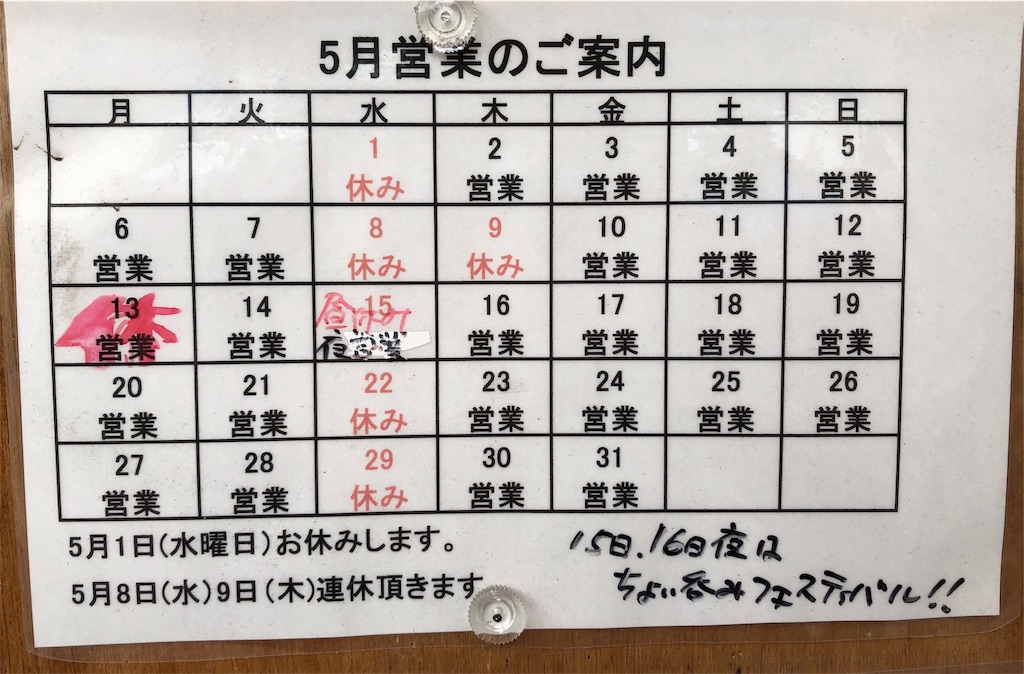 5月営業のご案内
月 火 水 木 金 土 日
1 2 3 4 5
休み 営業 営業 営業 営業
6 7 8 9 10 11 12
営業 営業 休み 休み 営業 営業 営業
13 休 14 昼休み 15 16 17 18 19
営業 営業 夜営業 営業 営業 営業 営業
20 21 22 23 24 25 26
営業 営業 休み 営業 営業 営業 営業
27 28 29 30 31
営業 営業 休み 営業 営業
5月1日(水曜日)お休みします。
5月8日(水)9日(木)連休頂きます
15日、16日夜は
ちょい呑みフェスティバル!!